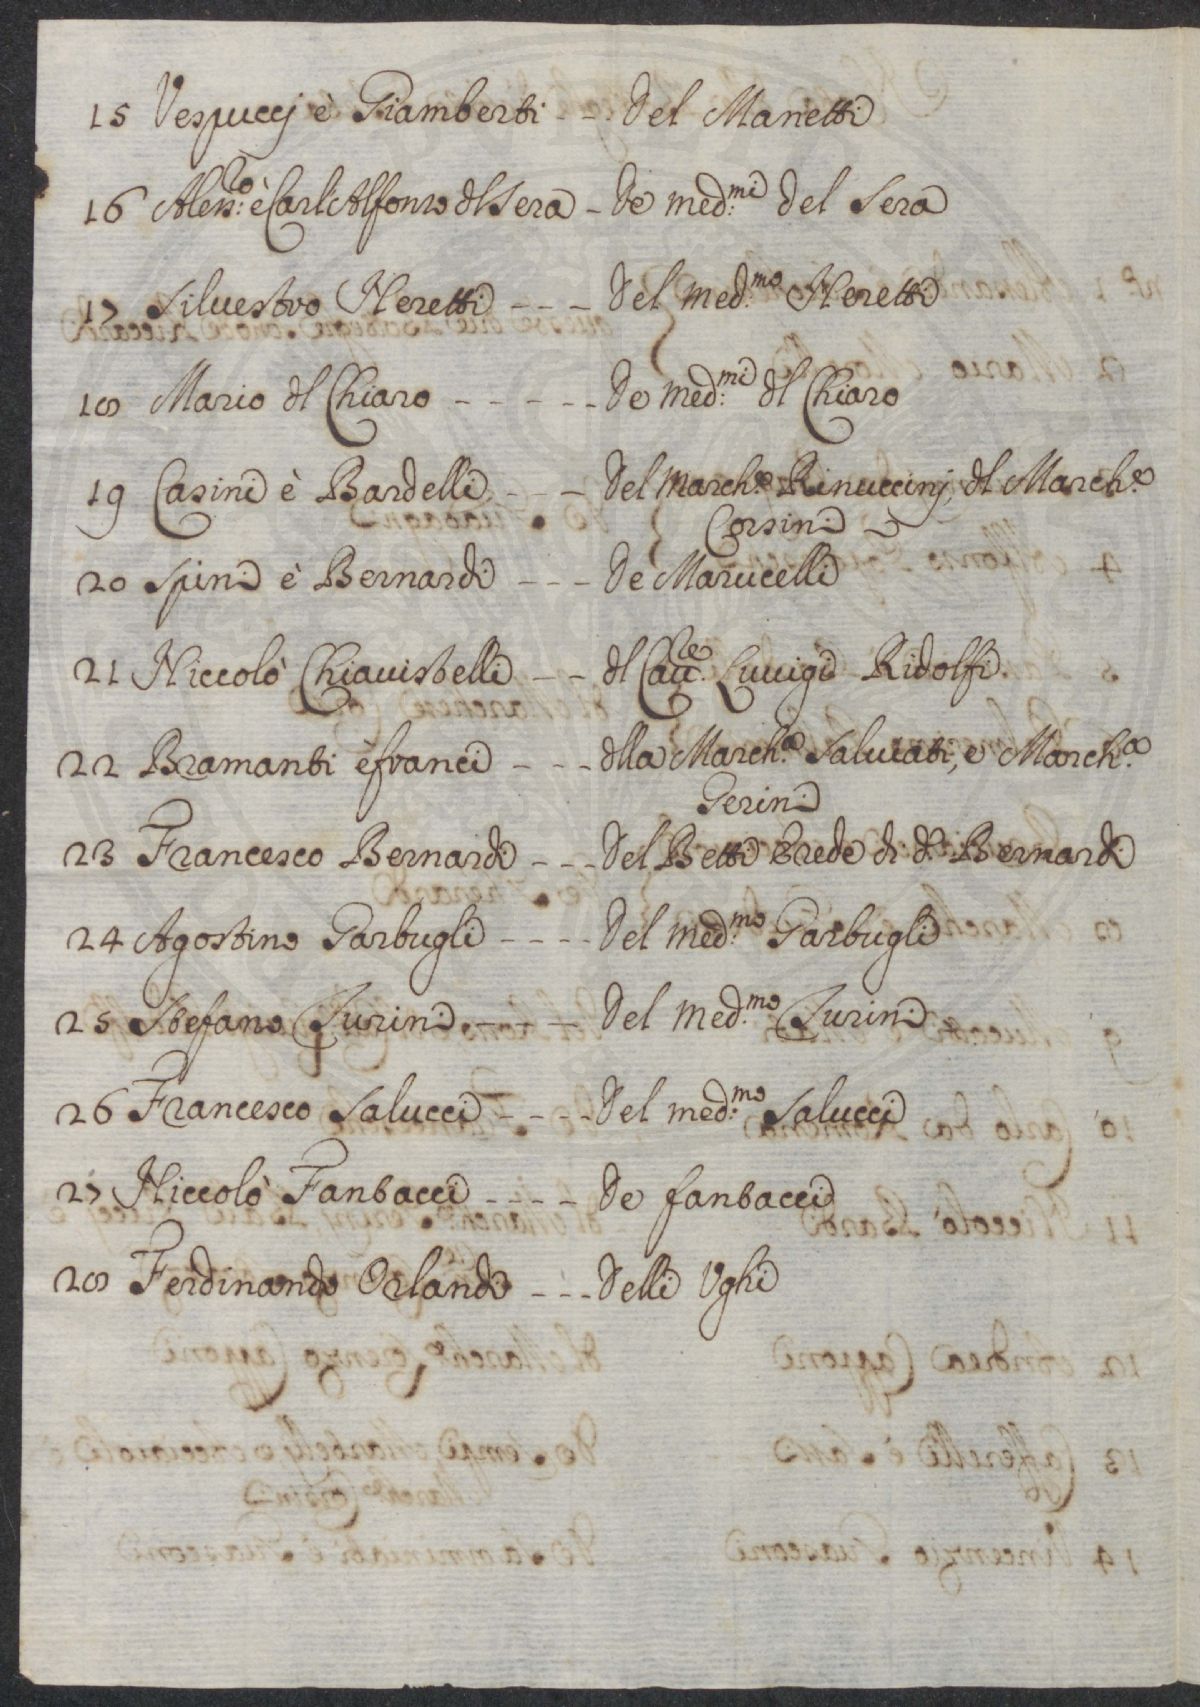 15 Vespuccj è Giamberti - - Del Manetti
16 Aless:ro è Carl'Alfonso dl Sera - De med:mi del Sera
17 Siluestro Neretti - - - Del med:mo Neretti
18 Mario dl Chiaro - - - - - De med:mi dl Chiaro
19 Casini è Bardelli - - - Del March:e Rinuccinj, dl March:e
Corsini
20 Spini è Bernardi - - - De Marucelli
21 Niccolò Chiauistelli - - dl Cau:re Luuigi Ridolfi
22 Bramanti è franci - - - dlla March:a Saluiati, e March:a
Gerini
23 Francesco Bernardi - - - Del Betti Erede di do: Bernardi
24 Agostino Garbugli - - - - Del med:mo Garbugli
25 Stefano Turini - - - Del med:mo Turini
26 Francesco Salucci - - - - Del med:mo Salucci
27 Niccolò Fantacci - - - - De fantacci
28 Ferdinando Orlandi - - - Delli Ughi